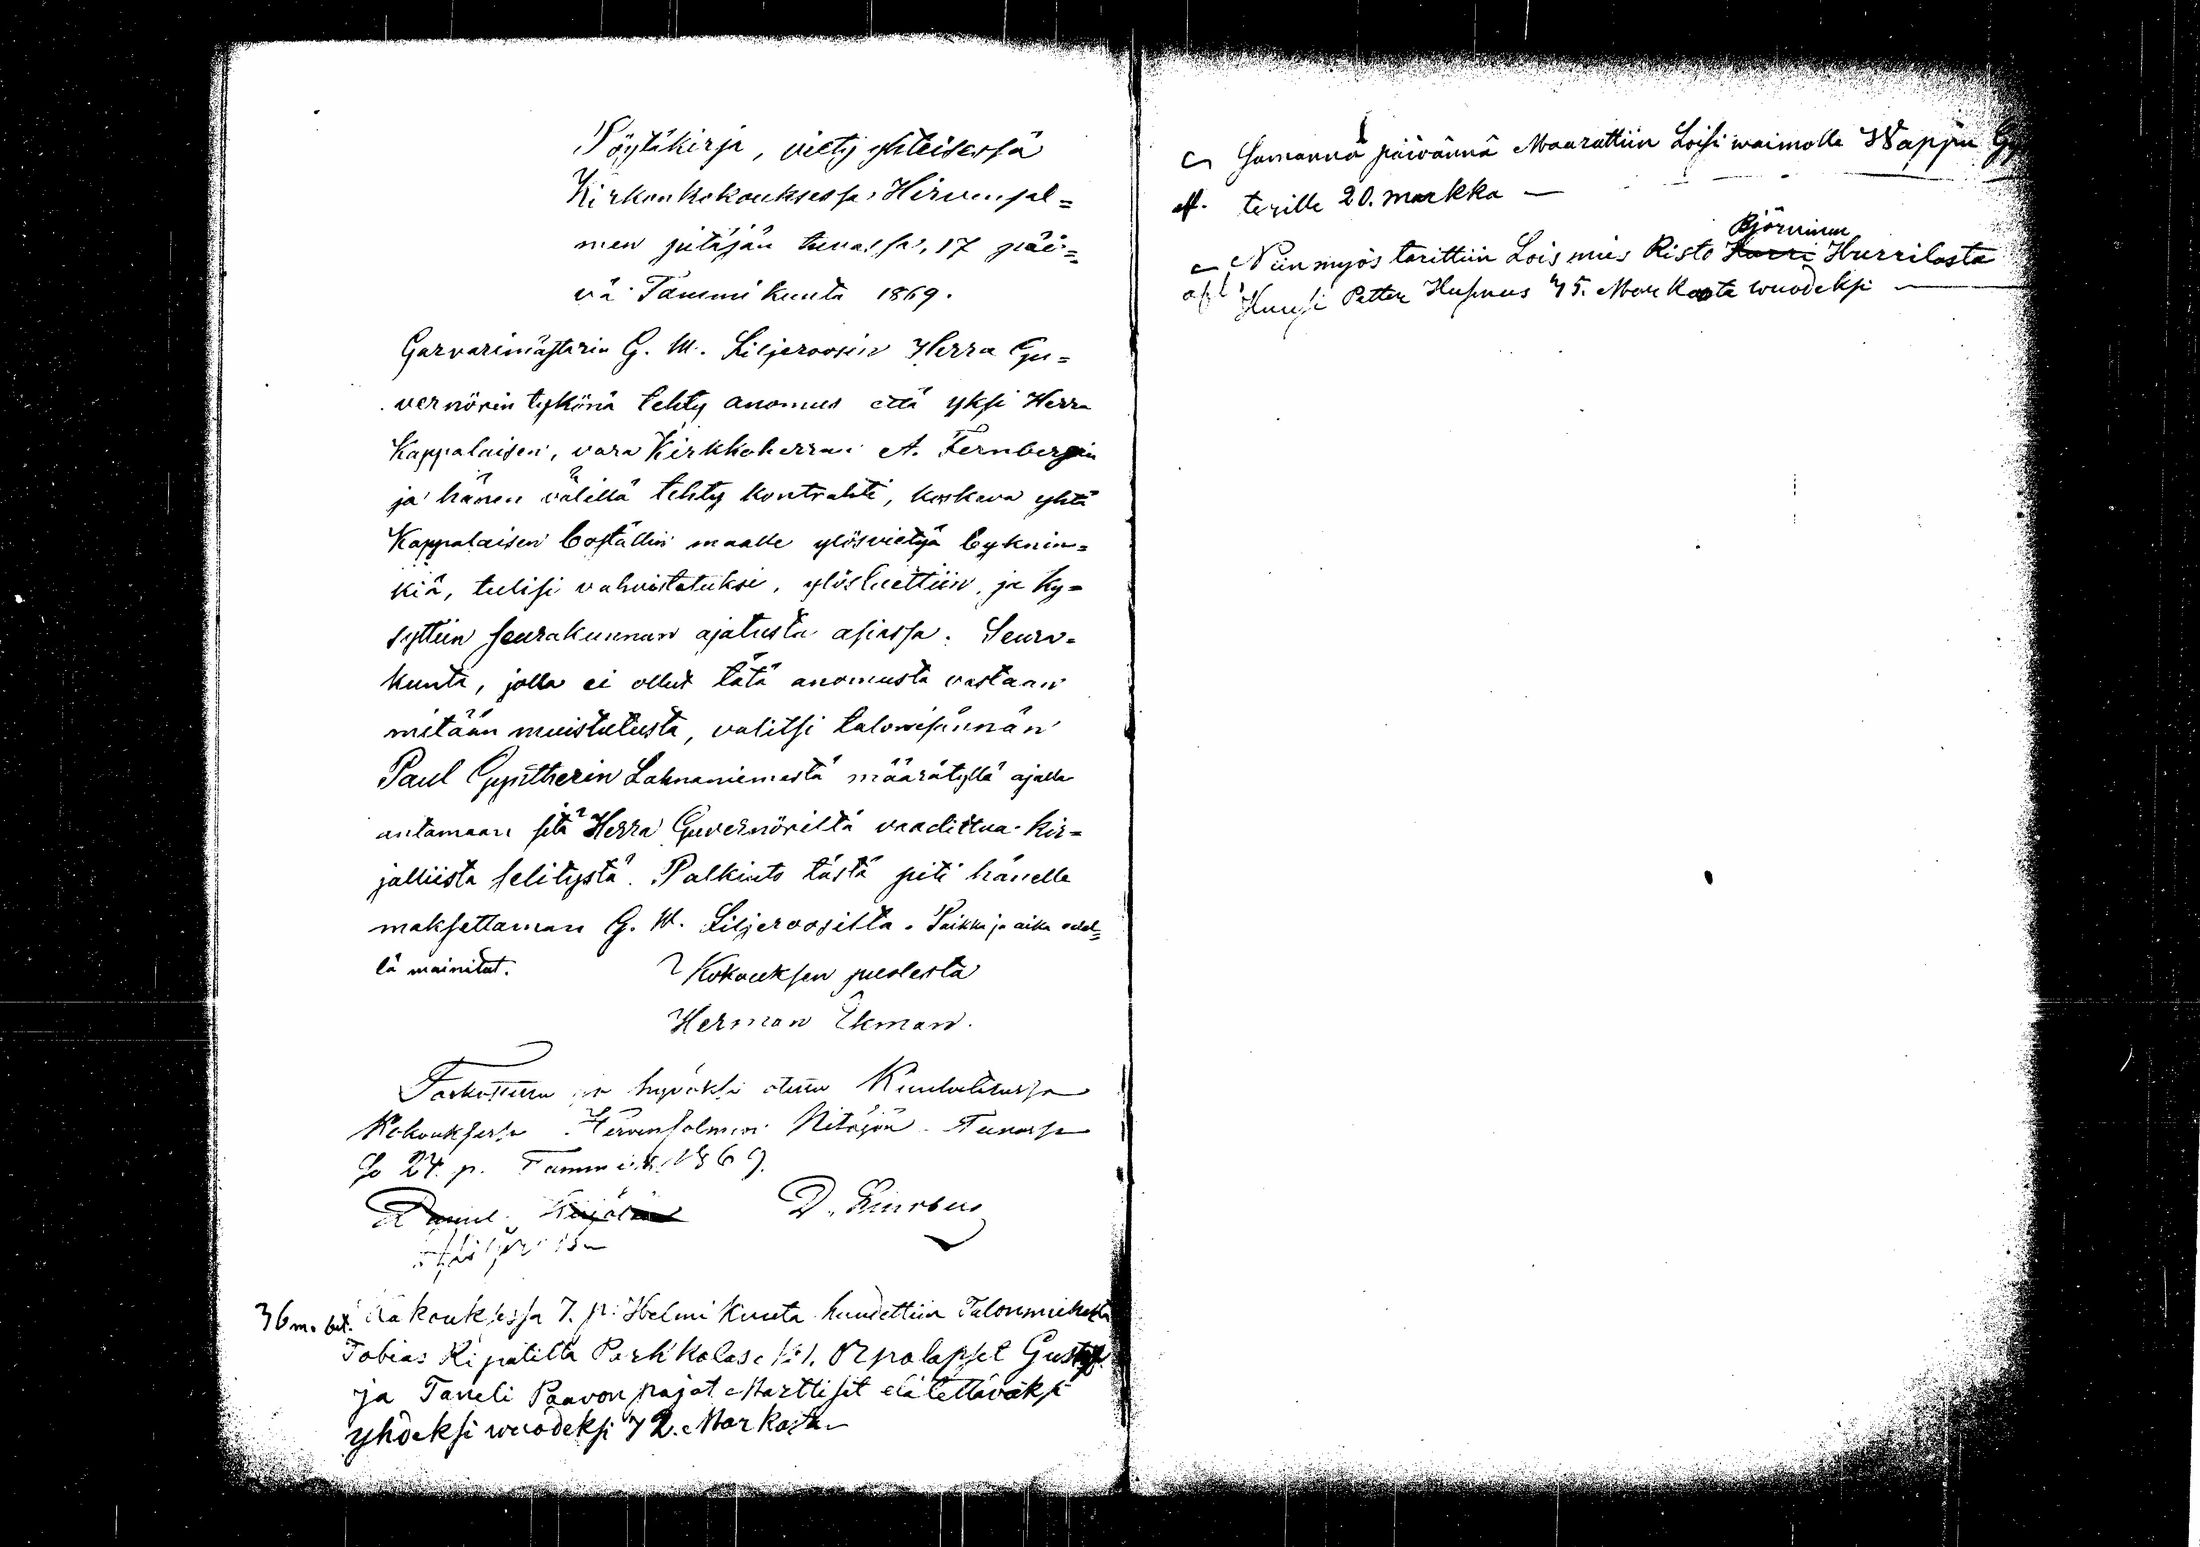 Pöytäkirja, viety yhteisessä
Kirkonkokouksessa Hirvensal=
men pitäjän tuvassa, 17 päi=
vä Tammikuuta 1869.
Garvarimästarin G. W. Liljeroosin Herra Gu=
vernörin tykönä tehty anomus että yksi Herra
Kappalaisen, vara Kirkkoherran A. Fernbergin
ja hänen välillä tehty kontrahti, koskeva yhtä
Kappalaisen boställin maalle ylösvietyä byknin=
kiä, tulisi vahvistetuksi, ylösluettiin, ja ky=
syttiin seurakunnan ajatusta asiassa. Seura=
kunta, jolla ei ollut tätä anomusta vastaan
mitään muistutusta, valitsi talonisännän
Paul Gyntherin Lahnaniemestä määrätyllä ajalla
antamaan sitä Herra Guvernöriltä vaadittua kir=
jalliista selitystä. Palkinto tästä piti hänelle
maksettaman G. W. Liljeroosilta. Paikka ja aika edel=
lä mainitut.
Kokouksen puolesta
Herman Ekman.
Tarkastettu ja hyväksi otettu Kuulutetussa
Kokouksessa Hirvensalmen Pitäjän Tuvassa
So 24. p. Tammik. 1869.
D.
36 m. bet. Kokouksessa 7. p: Helmikuuta huudettiin Talonmiehelta
Tobias Ripatilta Parkkolas. № 1. Orpolapset Gustaf
ja Taneli Paavonpajat Marttiset elätettäväksi
yhdeksi wuodeksi 72. Markasta
Samanna päivännä Maarattiin Loisi waimolle Wappu Gy
terille 20. markka
Björninen
Niin myös tarittiin Loismies Risto Harri Hurrilasta
Huusi Petter Husnus 45. Markasta wuodeksi